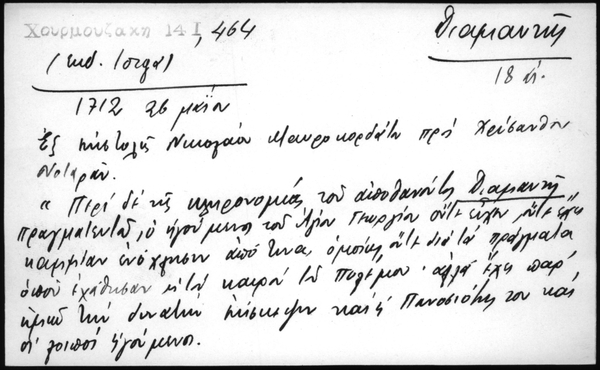 Χουρμουζάκη 14 I, 464
Διαμαντῆς
(ἐκδ.
18 αἰ.
1712 26 μαΐου
Ἐξ ἐπιστολῆς Νικολάου Μαυροκορδάτου πρὸς Χρύσανθον
Νοταρᾶν.
« Περὶ δὲ τῆς κληρονομίας τοῦ ἀποθανόντος Διαμαντῆ
πραγματευτοῦ, ὁ ἡγούμενος τοῦ Ἁγίου Γεωργίου οὔτε εἶχεν οὔτε ἔχει
καμμίαν ἐνόχλησιν ἀπό τινα, ὁμοίως οὔτε διὰ τὰ πράγματα
ὁποῦ ἐχάθησαν εἰς τὸν καιρὸν τοῦ πολέμου· ἀλλὰ ἔχει παρ'
ἡμῶν τὴν δυνατὴν ἐπίσκεψιν καὶ ἡ Πανοσιότης του καὶ
οἱ λοιποὶ ἡγούμενοι.